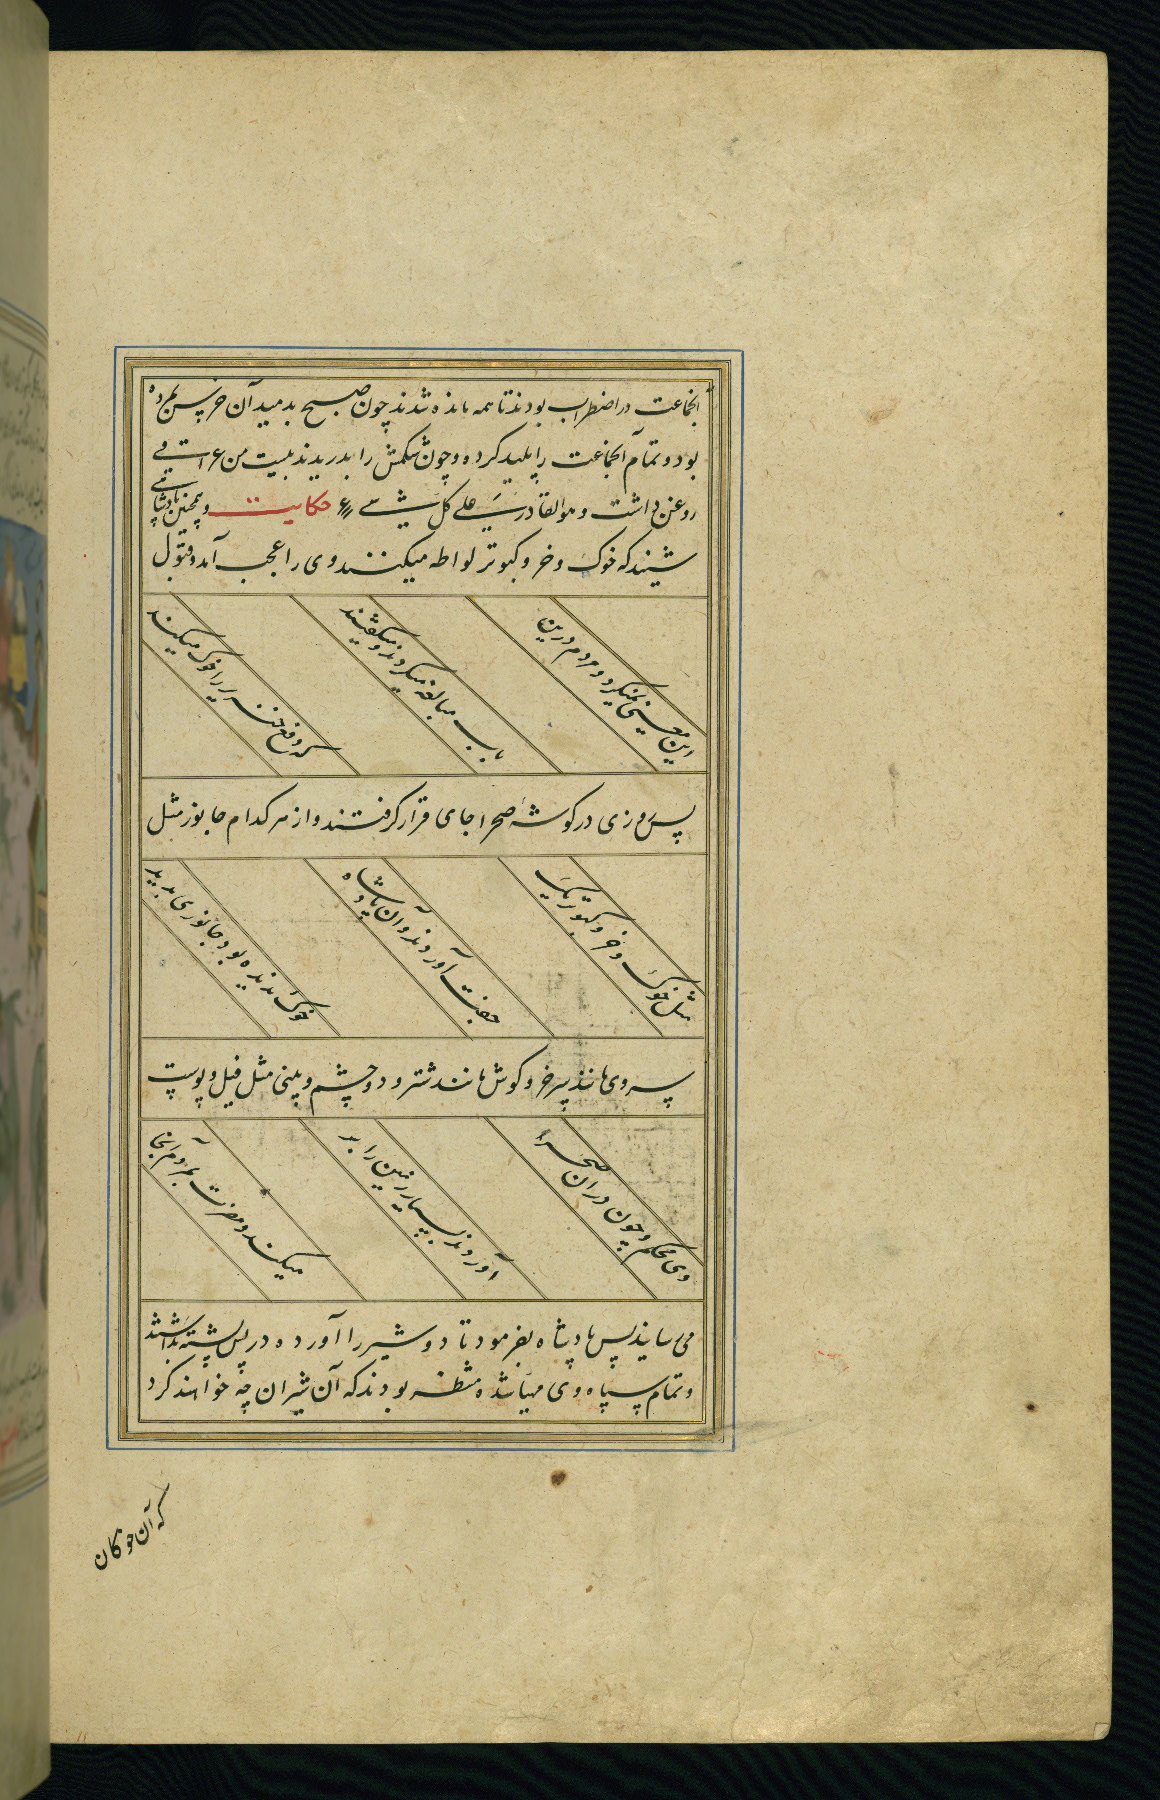 آنجماعت در اضطراب بودند تا همه مانده شدند چون صبح بدمید آن خرس مرده
بود و تمام آنجماعت را پلید کرده و چون شکمش را بدریدند بیست من
روغن داشت و هو القادر علی کل شیء حکایت و همچنین پادشاهی
شنید که خوک و خر و کبوتر لواطه میکنند وی را عجب آمد و قبول
این معنی نمیکرد و مردم درین
باب مبالغه میکردند و میگفتند
که خوک میکند
پس روزی در گوشه صحرا جای قرار گرفتند و از هر کدام جانور مثل
مثل خوک و خر و کبوتر یک
جفت آوردند و آن پادشاه
خوک ندیده بود جانوری بدید
سر وی مانند سر خر و گوش مانند شتر و دو چشم و بینی مثل فیل و پوست
وی محکم و چون در آن صحرا
آوردند بسیار زمین را بد
میکند و مضرت بمردم آنجا
می رسانید پس پادشاه بفرمود تا دو شیر را آورده در پس پشته بداشتند
و تمام سپاه وی مهیا شده منتظر بودند که آن شیران چه خواهند کرد
که آن خوکان